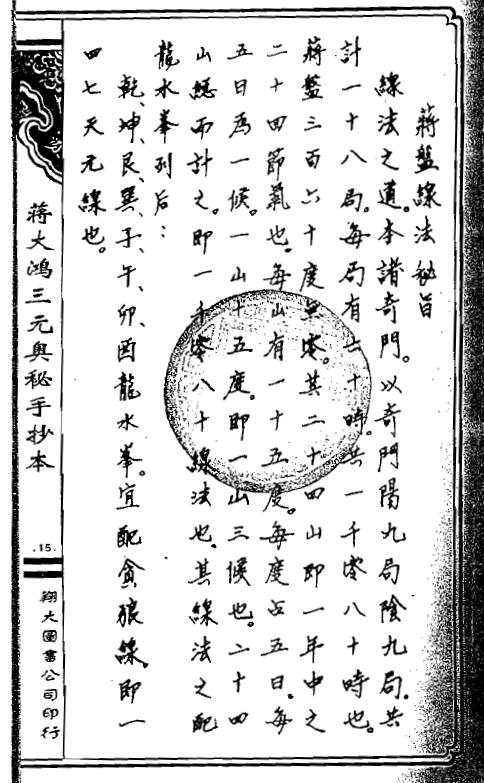 蔣盤線法秘旨
線法之道。本諸奇門。以奇門陽九局陰九局。共
計一十八局。每局有六十時。共一千零八十時也。
蔣盤三百六十度無零。其二十四山即一年中之
二十四節氣也。每山有一十五度。每度占五日。每
五日為一候。一山十五度。即一山三候也。二十四
山總而計之。即一千零八十線法也。其線法之配
龍水峯列后：
乾、坤、艮、巽、子、午、卯、酉龍水峯。宜配貪狼線。即一
四七天元線也。
蔣大鴻三元奧秘手抄本
.15.
翔大圖書公司印行